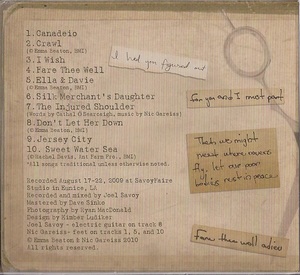 1. Canadeio
2. Crawl
(© Emma Beaton, BMI)
3. I Wish
4. Fare Thee Well
5. Ella & Davie
(© Emma Beaton, BMI)
6. Silk Merchant's Daughter
7. The Injured Shoulder
(Words by Caibal © Scarcaigh, music by Nic Gareiss)
8. Don't Let Her Down
(© Emma Beaton, BMI)
9. Jersey City
10. Sweet Water Sea
(© Rachel Davis, Ant Farm Pro., BMI)
*all songs traditional unless otherwise noted.
Recorded August 17-22, 2009 at SavoyFaire
Studio in Eunice, LA
Recorded and mixed by Joel Savoy
Mastered by Dave Sinko
Photography by Ryan MacDonald
Design by Kimber Ludiker
Joel Savoy - electric guitar on track 8
Nic Gareiss - feet on tracks 1, 5, and 10
© Emma Beaton & Nic Gareiss 2010
All rights reserved.
I had you figured out
For you and I must part
That we might
meet where ravens
fly, let our poor
bodies rest in peace
Fare thee well adieu